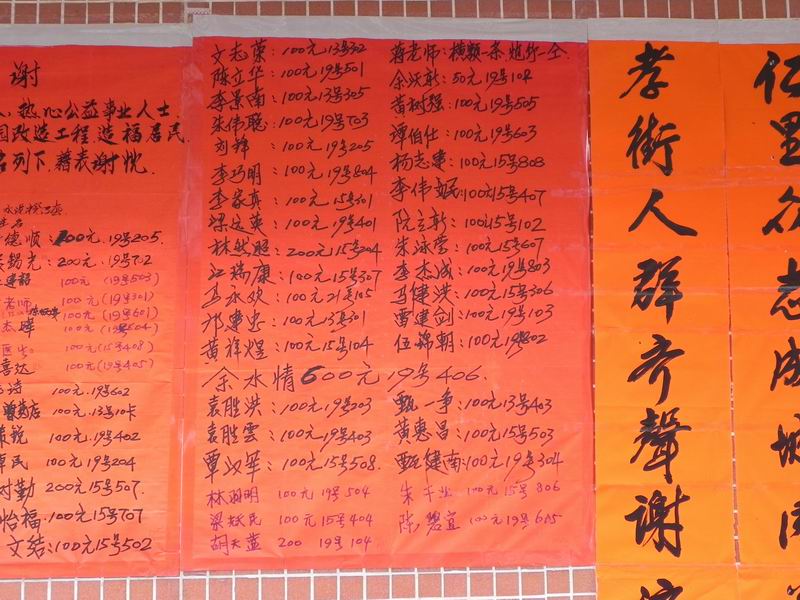 谢
人,热心公益事业人士
园改造工程,造福居民
名列下,藉表谢忱
德顺:200元.19号205.
锡光:200元.19号702
100元(19号503)
老师 100元(19号301)
100元(19号601)
杰晖 100元(19号504)
100元(15号408)
喜达 100元(19号405)
诗 100元.19号602
100元.13号10卡
锐 100元.19号402
民 100元19号204
勤 200元15号507.
怡福.100元15号707
文结:100元15号502
文志荣:100元13号302
陈立华:100元19号501
李景南:100元13号305
朱伟聪:100元19号703
刘锋:100元19号205
李巧明:100元19号804
李家真:100元15号301
梁连英:100元19号401
林然照:200元15号204
江瑞康:100元15号307
永欢:100元21号105
邝肇忠:100元13号301
黄祥煜:100元15号104
蒋老师:横额一条,炮仗一仝.
余沃新:50元19号104
黄树强:100元19号505
谭伯仕:100元19号603
杨志東:100元15号808
李伟民:100元15号407
阮立新:100元15号102
朱泳荣:100元15号607
李杰成:100元19号803
马健洪:100元15号306
雷建剑:100元19号103
伍锦朝:100元19号802
余水情600元19号406.
袁胜洪:100元19号203
袁胜雲:100元19号403
覃汉军:100元15号508.
林润明 100元19号504
梁栎民 100元15号404
胡天蓝 200 19号104
甄一争:100元13号403
黄惠昌:100元15号503
甄健南:100元19号304
朱干业 100元15号806
陈碧宜 100元19号605
孝街人群齐聲谢
仁里众志成城